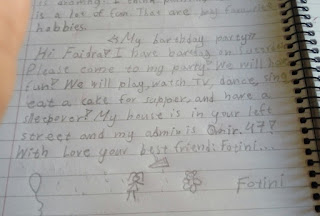 is a lot of fun. That are my favourite
hobbies.
My birthday party?
Hi Faidra! I have barthay on
Please come to my party? We will have
fun? We will play, watch TV, dance, sing
eat a cake for supper, and have a
sleepover? My house is in your left
street and my admix is 47?
With love your best friend: Fotini...
Fotini